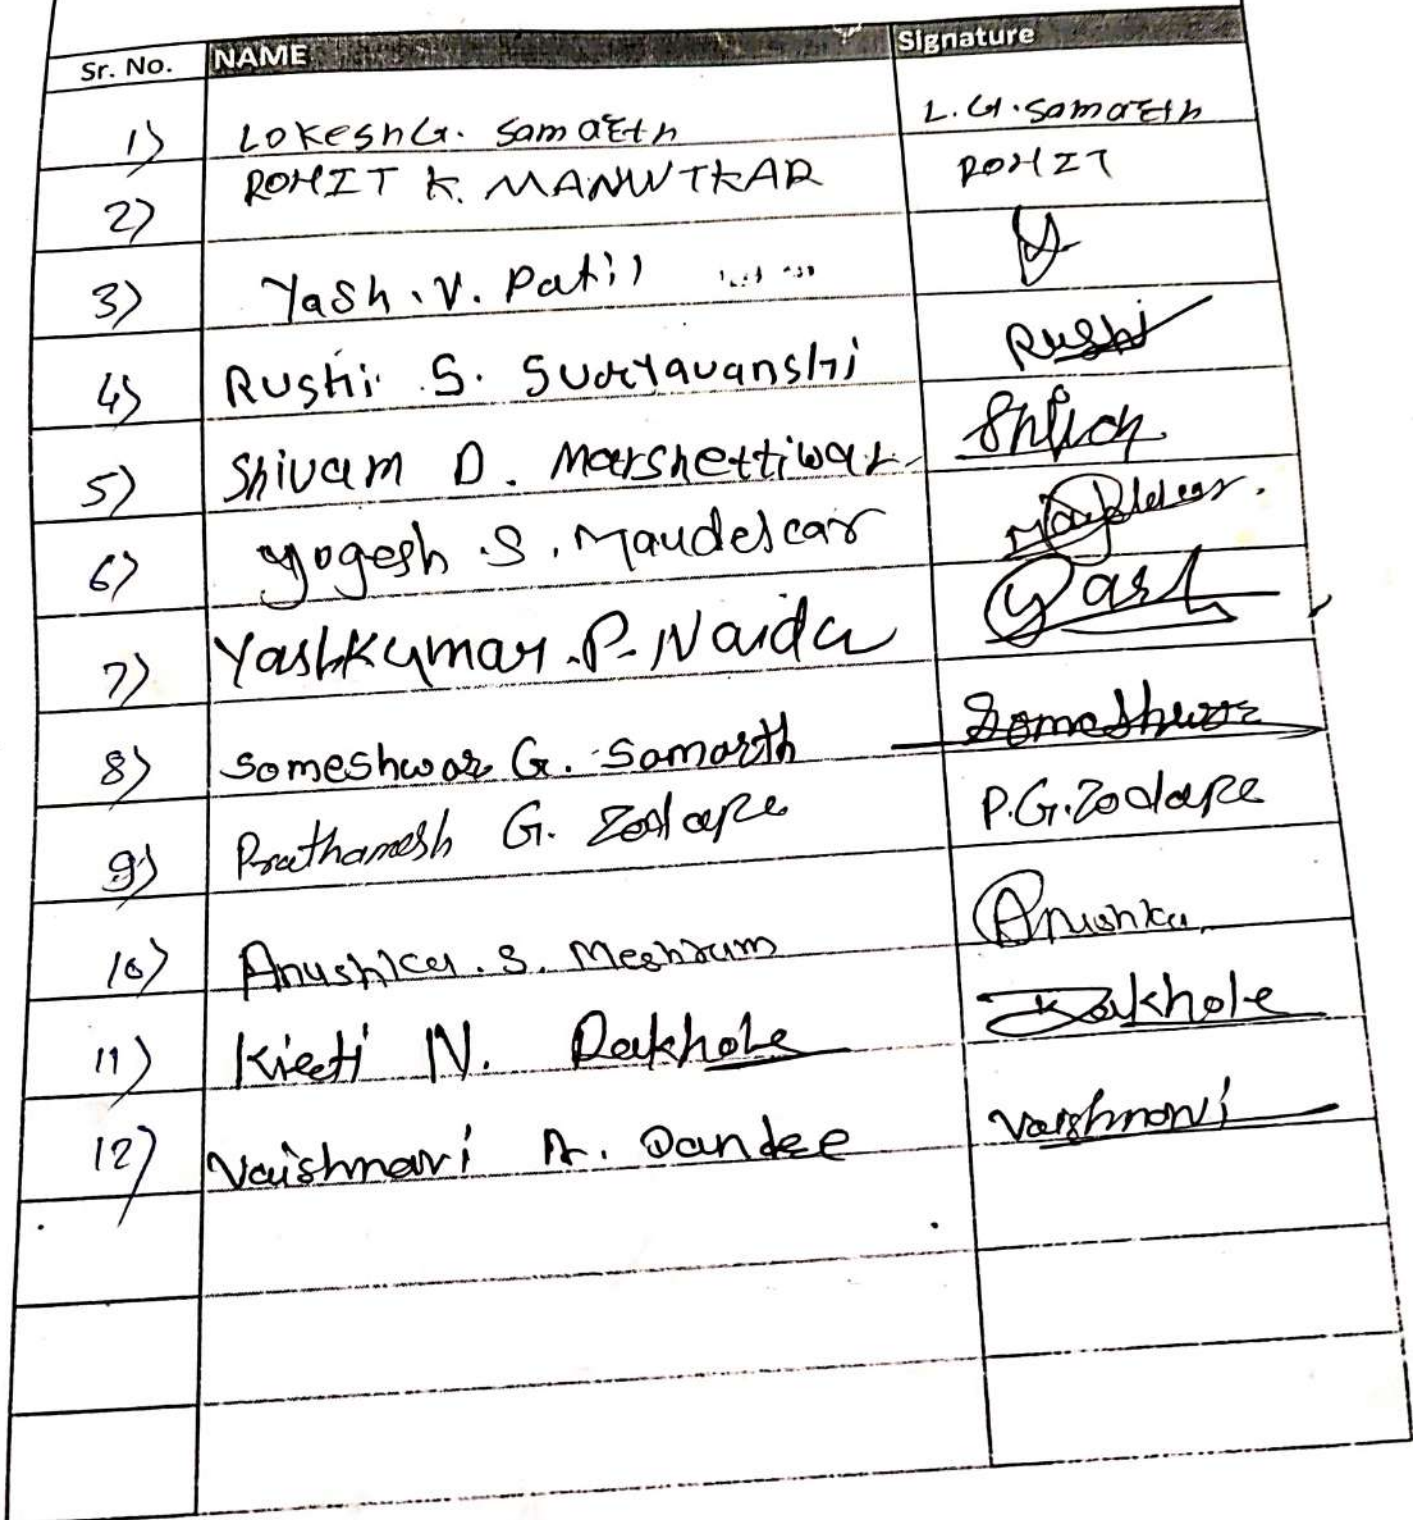 Sr. No. NAME Signature
1) Lokesh G. Samarth L.G.Samarth
2) ROHIT K. MANWTKAR ROHIT
3) Yash . V. Patil
4) Rushi S. Suryavanshi Rushi
5) Shivam D. Marshettiwar
6) Yogesh .S. Maudekar
7) Yashkumar .P. Naidu Yash
8) Someshwar G. Samarth Someshwar
9) Prathamesh G. Zodape P.G.Zodape
10) Anushka . S. Meshram Anushka
11) Kirti N. Dakhole Dakhole
12) Vaishnavi A. Dandre Vaishnavi